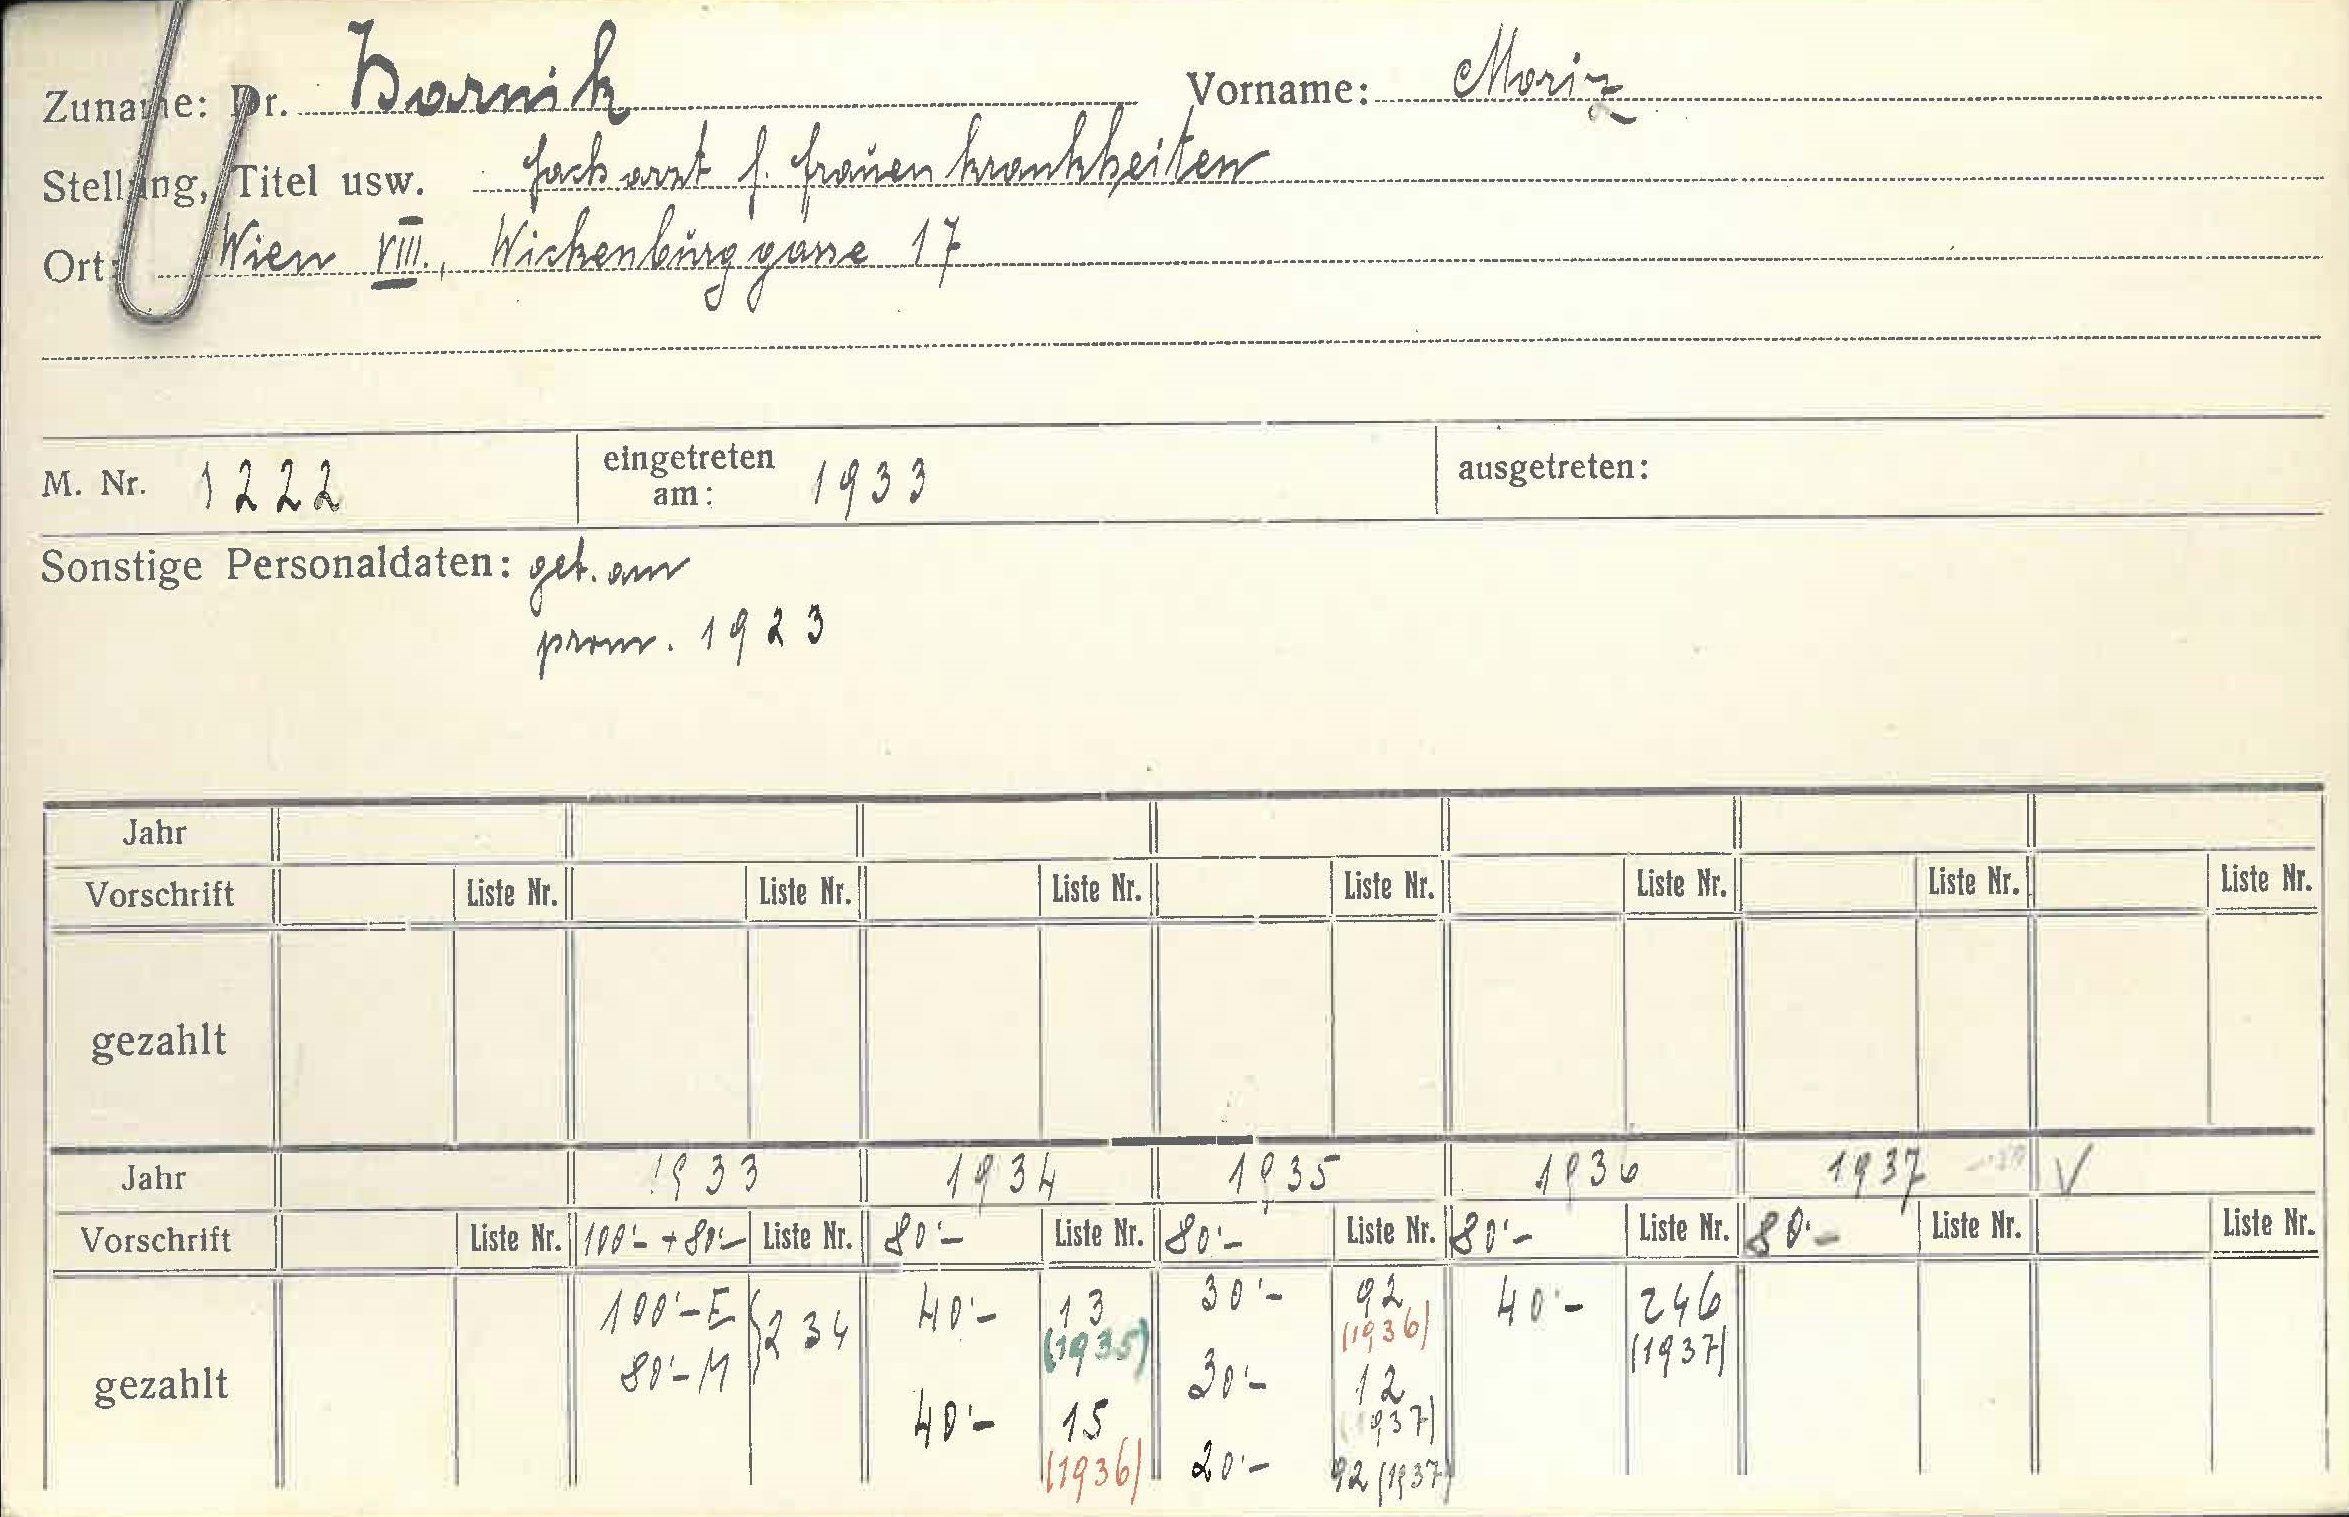 Zuname: Dr. Hornik Vorname: Moriz
Stellung, Titel usw. Facharzt f. Frauenkrankheiten
Ort: Wien VIII., Wickenburggasse 17
M. Nr. 1222 eingetreten am: 1933 ausgetreten:
Sonstige Personaldaten: geb. am
prom. 1923
Jahr
Vorschrift Liste Nr. Liste Nr. Liste Nr. Liste Nr. Liste Nr. Liste Nr. Liste Nr.
gezahlt
Jahr 1933 1934 1935 1936 1937 V
Vorschrift Liste Nr. 100'- + 80'- Liste Nr. 80'- Liste Nr. 80'- Liste Nr. 80'- Liste Nr. 80'- Liste Nr. Liste Nr.
gezahlt
100'- E } 234
80'- M
40'- 13
(1935)
40'- 15
(1936)
30'- 92
(1936)
30'- 12
(1937)
20'- 92 (1937)
40'- 246
(1937)